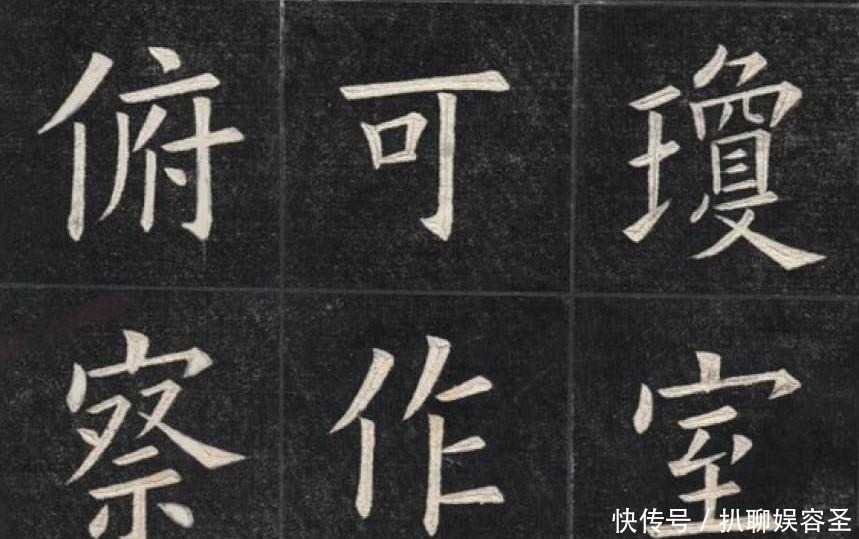 瓊室
可作
俯察
快传号 / 扒聊娱容圣